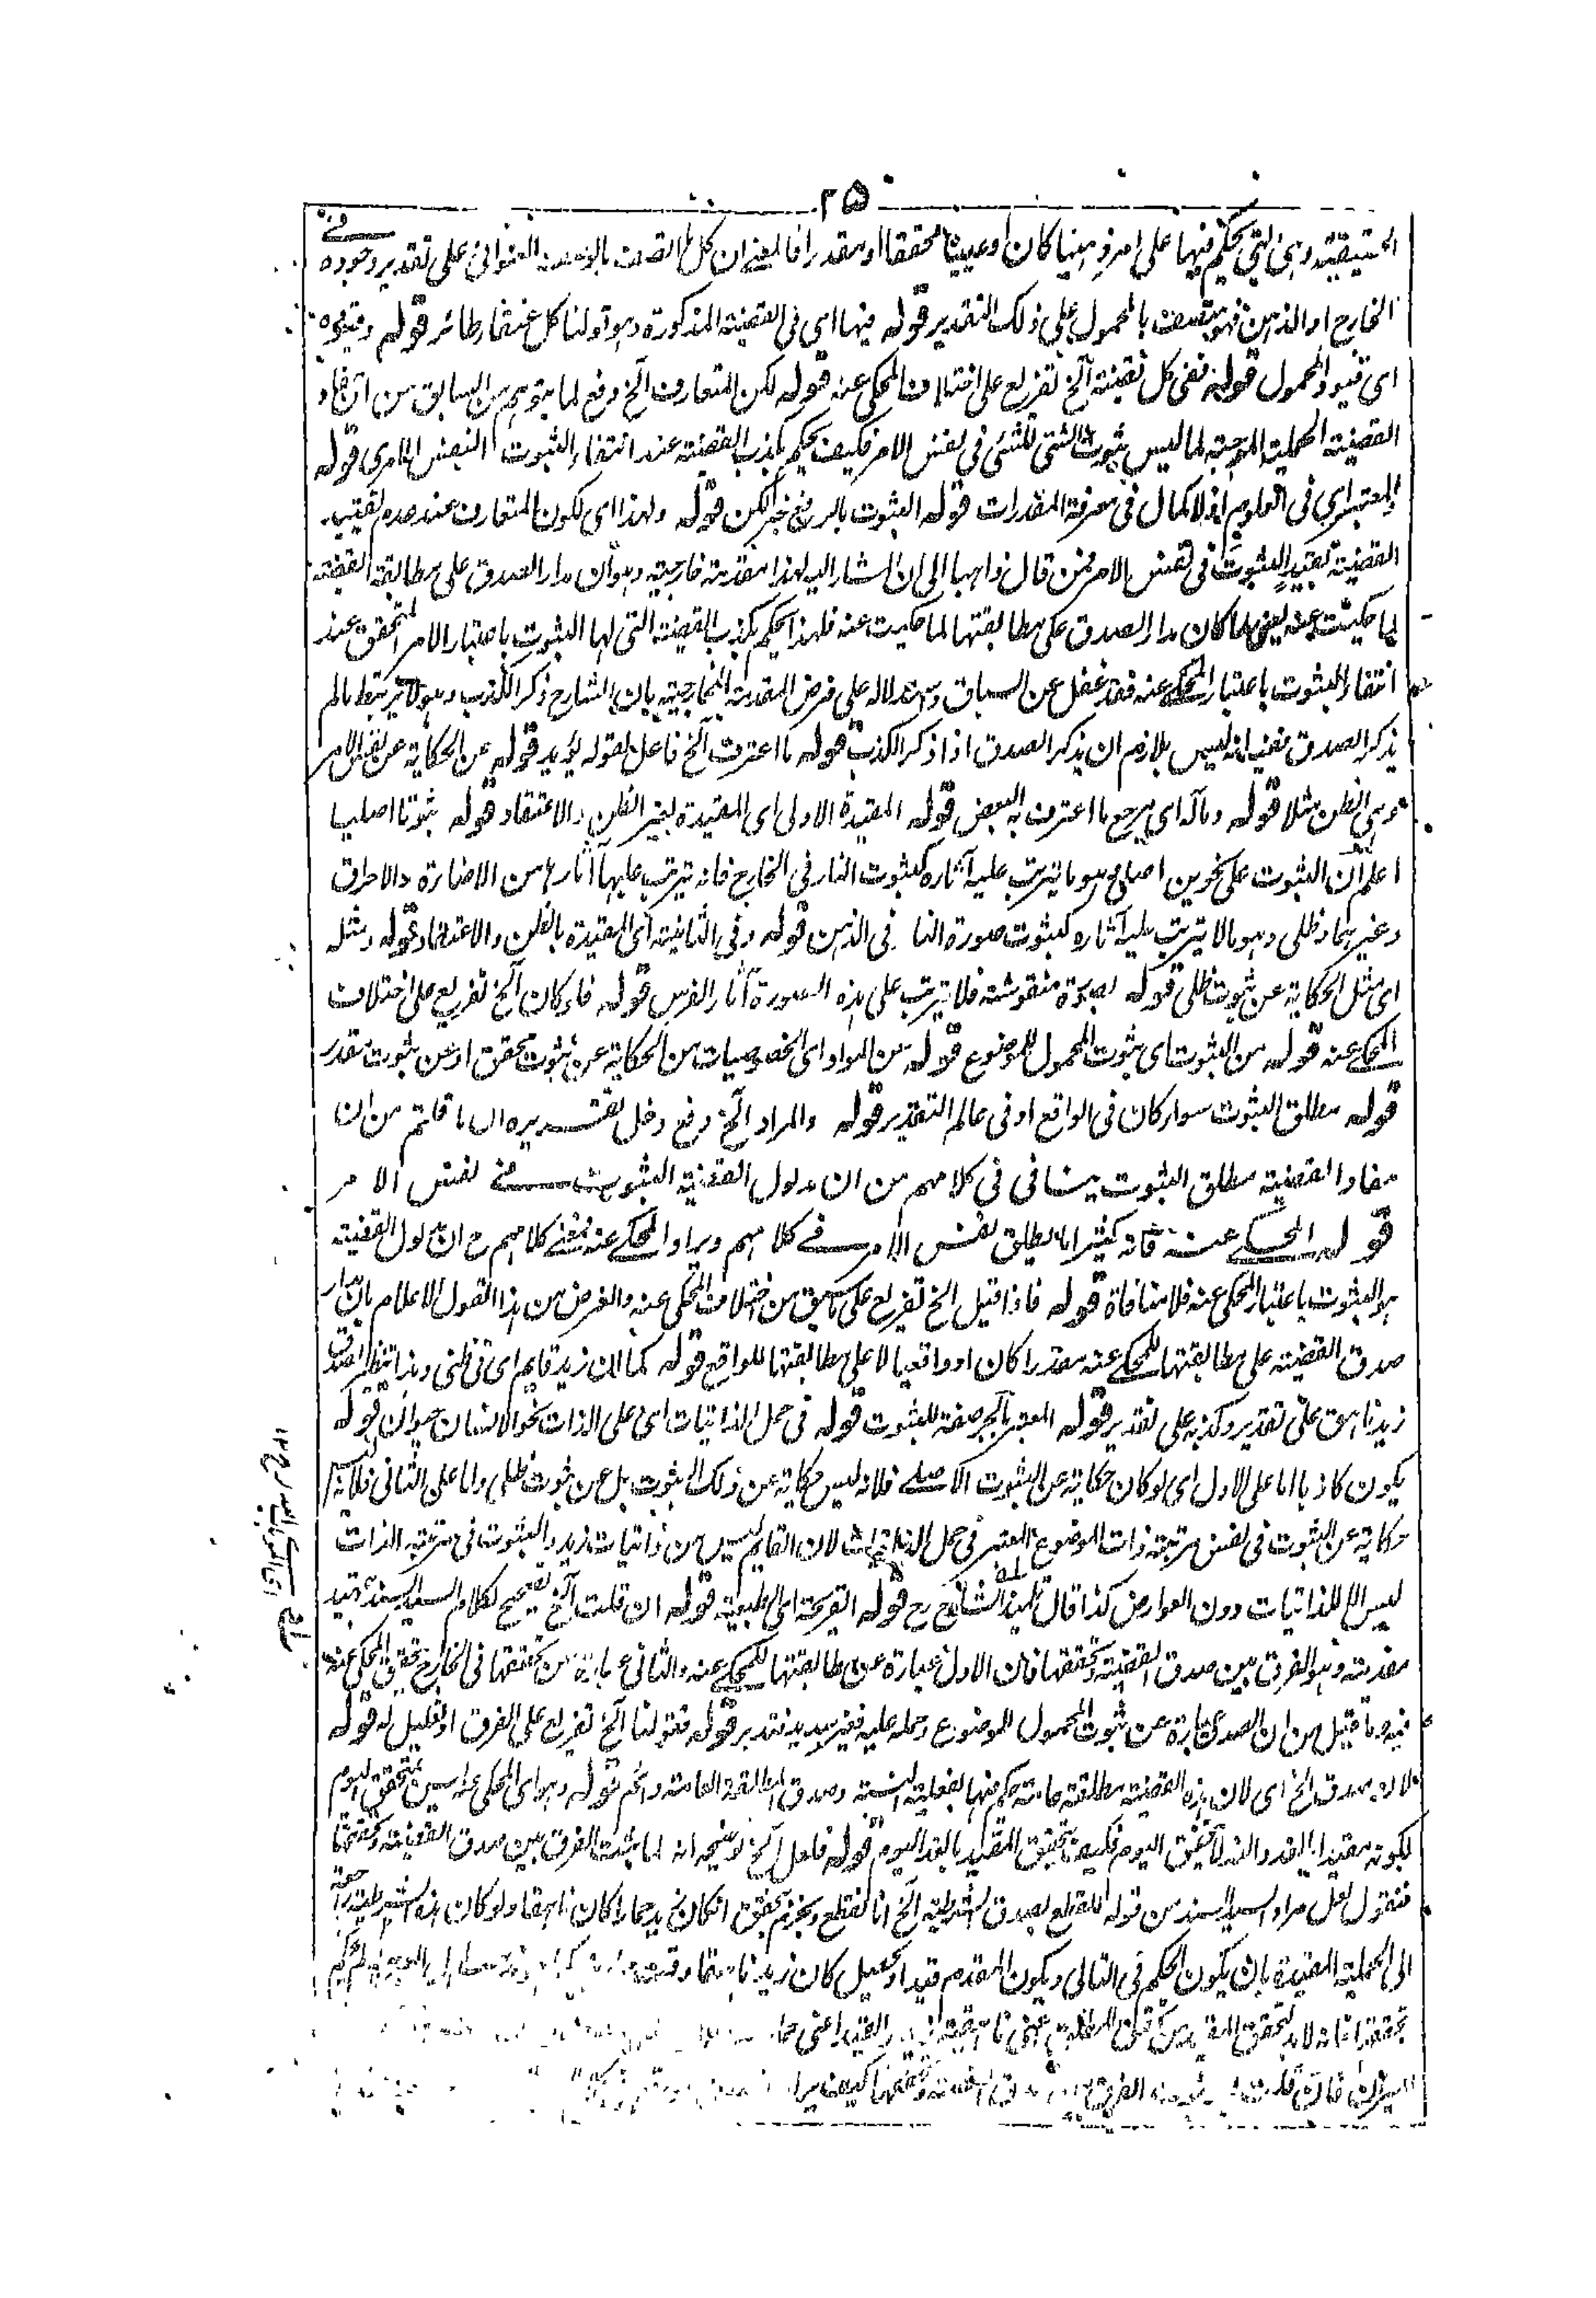 ٢٥
الحقيقية وهى التى يحكم فيها على امر ذهنيا كان او عينيا محققا او مقدرا فالمعنى ان كل ما اتصف بالوصف العنوانى على تقدير وجوده فى
الخارج او الذهن فهو متصف بالمحمول على ذلك التقدير قوله فيها اى فى القضية المذكورة وهو قولنا كل عنقار طائر قوله وقيوده
اى قيود المحمول قوله ففى كل قضية الخ تفريع على اختلاف المحكى عنه قوله لكن المتعارف الخ دفع لما يتوهم من السابق من ان مفاد
القضية الحملية الموجبة لما ليس ثبوت الشئ للشئ فى نفس الامر فكيف يحكم بكذب القضية عند انتفاء الثبوت النفس الامرى قوله
المعتبر اى فى العلوم اذ لا كمال فى معرفة المقدرات قوله الثبوت بالرفع خبر لكن قوله ولهذا اى لكون المتعارف عند عدم تقييد
القضية تقييد الثبوت فى نفس الامر فمن قال ذاهبا الى ان المشار اليه لهذا مقدمة خارجية وهو ان مدار الصدق على مطابقة القضية
لما حكيت عنه يعنى لما كان مدار الصدق على مطابقتها لما حكيت عنه فلهذا يحكم بكذب القضية التى لها الثبوت باعتبار الامر المتحقق عند
انتفاء الثبوت باعتبار المحكى عنه فقد غفل عن السباق واستدلاله على فرض المقدمة الخارجية بان الشارح ذكر الكذب وهو لا يرتبط ما لم
يذكر الصدق ففيه انه ليس بلازم ان يذكر الصدق اذا ذكر الكذب قوله ما اعترف الخ فاعل لقوله يؤيد قوله عن الحكاية عن نفس الامر
وهى الظن مثلا قوله ومآله اى يرجع ما اعترف به البعض قوله المقيدة الاولى اى المقيدة بغير الظن والاعتقاد قوله ثبوتا اصليا
اعلم ان الثبوت على نحوين اصلى وهو ما يترتب عليه آثاره كثبوت النار فى الخارج فانه يترتب عليها آثارها من الاضارة والاحراق
وغيرهما وظلى وهو ما لا يترتب عليه آثاره كثبوت صورة النا فى الذهن قوله وفى الثانية اى المقيدة بالظن والاعتقاد قوله ومثله
اى مثل الحكاية عن ثبوت ظلى قوله بصورة منقوشة فلا يترتب على هذه الصورة آثار الفرس قوله فلو كان الخ تفريع على اختلاف
المحكى عنه قوله من الثبوت اى ثبوت المحمول للموضوع قوله من المواد اى الخصوصيات من الحكاية عن ثبوت محقق او عن ثبوت مقدر
قوله مطلق الثبوت سوار كان فى الواقع او فى عالم التقدير قوله والمراد الخ دفع دخل تقديره ان ما قلتم من ان
مفاد القضية مطلق الثبوت ينافى فى كلامهم من ان مدلول القضية الثبوت فى نفس الامر
قوله المحكى عنه فانه كثيرا ما يطلق نفس الامر فى كلامهم ويراد المحكى عنه فمعنى كلامهم ح ان مدلول القضية
هو الثبوت باعتبار المحكى عنه فلا منافاة قوله فاذا قيل الخ تفريع على ما سبق من اختلاف المحكى عنه والغرض من هذا القول الاعلام بان مدار
صدق القضية على مطابقتها للمحكى عنه مقدرا كان او واقعيا لا على مطابقتها للواقع قوله كما ان زيد قايم اى فى ظنى وهذا تنظير لصدق
زيد ناهق على تقدير وكذبه على تقدير قوله المعتبر بالجر صفة للثبوت قوله فى حمل الذاتيات اى على الذات نحو الانسان حيوان قوله
يكون كاذبا اما على الاول اى لو كان حكاية عن الثبوت الاصلى فلانه ليس حكاية عن ذلك الثبوت بل عن ثبوت ظلى واما على الثانى فلانه ليس
حكاية عن الثبوت فى نفس مرتبة ذات الموضوع المعتبر فى حمل الذاتيات لان القايم ليس من ذاتيات زيد والثبوت فى مرتبة الذات
ليس الا للذاتيات دون العوارض كذا قال تلميذ الشارح رح قوله القريحة اى الطبيعة قوله ان قلت الخ تصحيح لكلام السيد السند بتمهيد
مقدمة وهو الفرق بين صدق القضية وتحققها فان الاول عبارة عن مطابقتها للمحكى عنه والثانى عبارة عن تحققها فى الخارج تحقيق المحكى عنه
فيه وما قيل من ان الصدق عبارة عن ثبوت المحمول للموضوع وحمله عليه فغير سديد فتدبر قوله فقولنا الخ تفريع على الفرق او تعليل له قوله
لانه يصدق الخ اى لان هذه القضية مطلقة عامة حكم فيها بفعلية النسبة وصدق المطلقة العامة دائم قوله وهو اى المحكى عنه ليس بمتحقق اليوم
لكونه مقيدا بالغد والغد لا يتحقق اليوم فكيف يتحقق المقيد بالغد اليوم قوله فلعل الخ توضيحه انه لما ثبت الفرق بين صدق القضية وتحققها
فنقول لعل مراد السيد السند من قوله انا نقطع بصدق الشرطية الخ انا نقطع ونجزم بتحقق ان كان زيد حمارا كان ناهقا ولو كان هذه الشرطية راجعة
الى الحملية المقيدة بان يكون الحكم فى التالى ويكون المقدم قيدا ويحصل كان زيد ناهقا وقت
تحققها فانه لابد لتحقق المقيد من تحقق
فان قلت الفرق